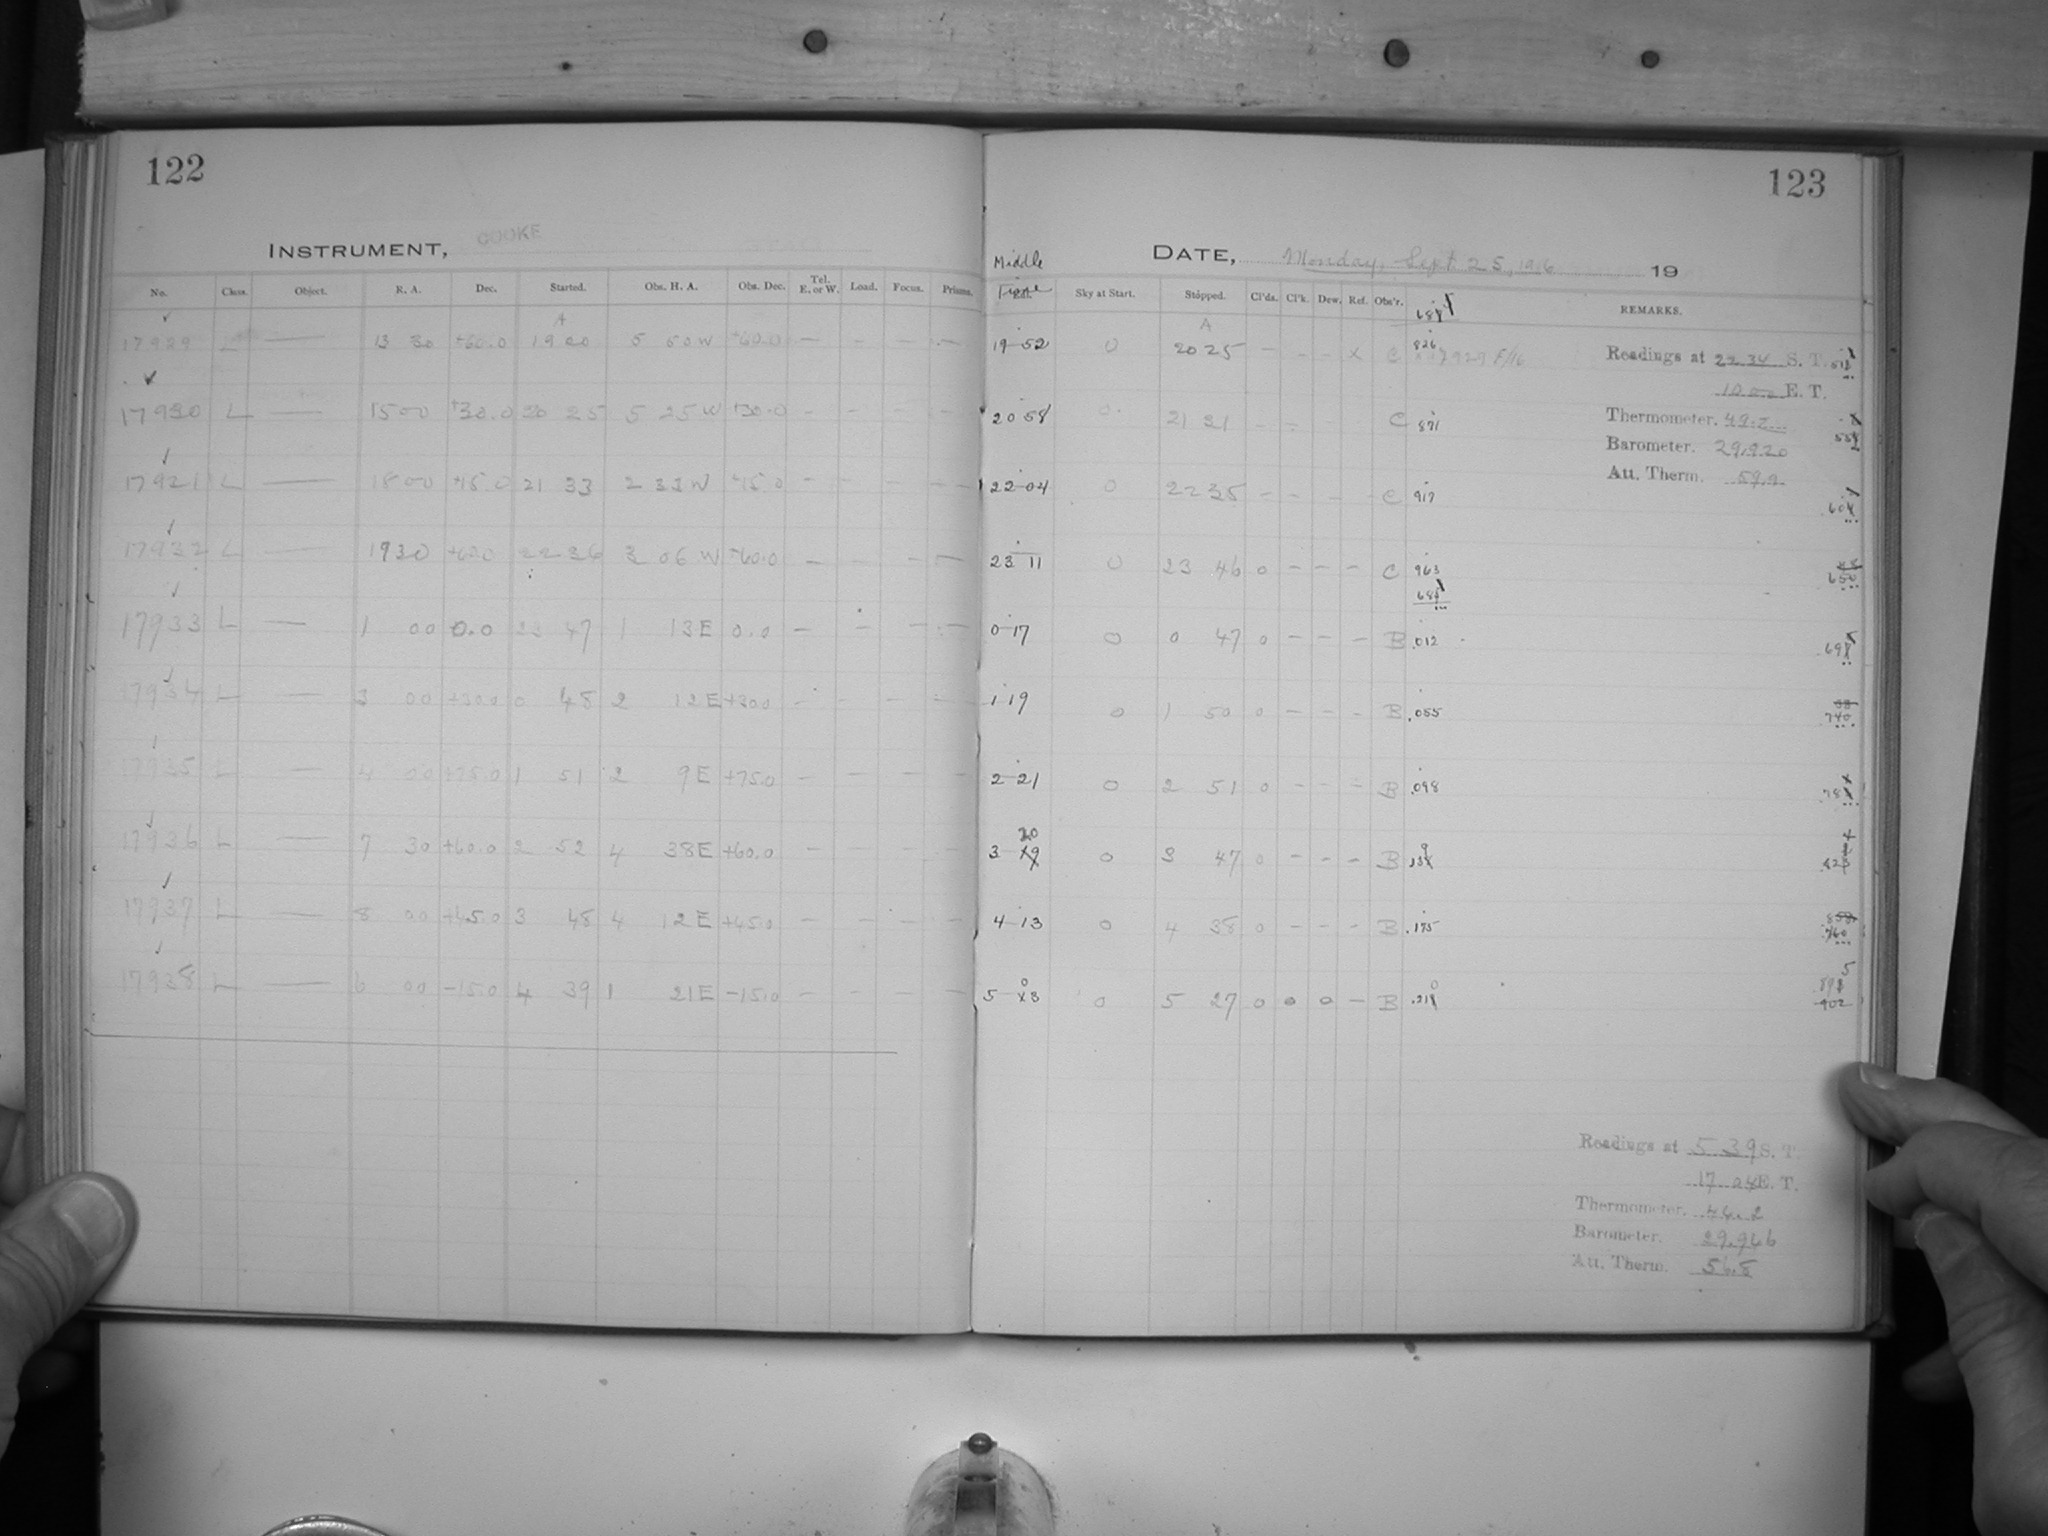 122
123
INSTRUMENT, COOKE
Middle
DATE, Monday, Sept 25, 1916 19
No. Class. Object. R. A. Dec. Started. Obs. H. A. Obs. Dec. Tel. E. or W. Load. Focus. Prisms. Time Sky at Start. Stopped. Cl'ds. Cl'k. Dew. Ref. Obs'r. REMARKS.
A A
17929 L — 13 30 +60.0 19 20 5 50 W +60.0 — — — — 19 52 0 20 25 — — — x C 826 17929 F/16
17930 L — 15 00 +30.0 20 25 5 25 W +30.0 — — 20 58 0 21 31 — — C 871
17931 L — 18 00 +15.0 21 33 2 33 W +15.0 — — — — — 22 04 0 22 35 — — — — C 917
17932 L — 19 30 +60.0 22 36 3 06 W +60.0 — — — — 23 11 0 23 46 0 — — — C 963
17933 L — 1 00 0.0 23 47 1 13 E 0.0 — — — — 0 17 0 0 47 0 — — — B .012
17934 L — 3 00 +30.0 0 48 2 12 E +30.0 — — — — 1 19 0 1 50 0 — — — B .055
740
17935 L — 4 00 +75.0 1 51 2 9 E +75.0 — — — — 2 21 0 2 51 0 — — — B .098
17936 L — 7 30 +60.0 2 52 4 38 E +60.0 — — — — 3 20 0 3 47 0 — — — B
17937 L — 8 00 +45.0 3 48 4 12 E +45.0 — — — — 4 13 0 4 38 0 — — — B .175
17938 L — 6 00 −15.0 4 39 1 21 E −15.0 — — — — 5 03 0 5 27 0 0 0 — B
902
Readings at 22 34 S. T.
10 00 E. T.
Thermometer. 49.2
Barometer. 29.920
Att. Therm. 59.0
Readings at 5 39 S. T.
17 04 E. T.
Thermometer. 44.2
Barometer. 29.946
Att. Therm. 56.8